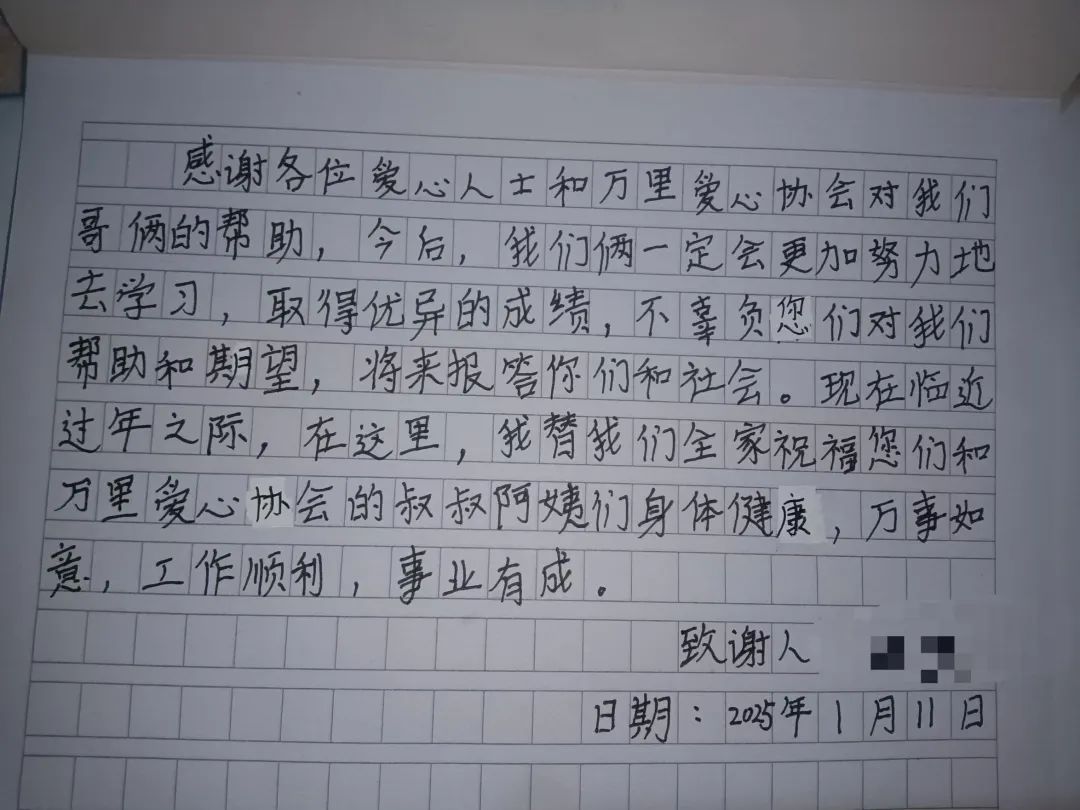 感谢各位爱心人士和万里爱心协会对我们
哥俩的帮助，今后，我们俩一定会更加努力地
去学习，取得优异的成绩，不辜负您们对我们
帮助和期望，将来报答你们和社会。现在临近
过年之际，在这里，我替我们全家祝福您们和
万里爱心协会的叔叔阿姨们身体健康，万事如
意，工作顺利，事业有成。
致谢人
日期：2025年1月11日